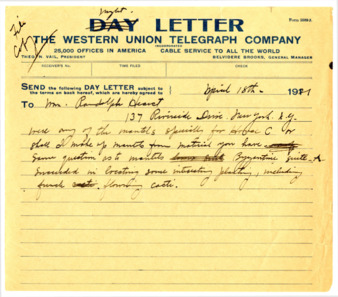 night.
DAY LETTER
Form 2589 A
File
THE WESTERN UNION TELEGRAPH COMPANY
INCORPORATED
25,000 OFFICES IN AMERICA CABLE SERVICE TO ALL THE WORLD
THEO. N. VAIL, PRESIDENT BELVIDERE BROOKS, GENERAL MANAGER
RECEIVER'S NO. TIME FILED CHECK
SEND the following DAY LETTER subject to
the terms on back hereof, which are hereby agreed to
April 18th - 1921
To Mr. Randolph Hearst
137 Riverside Drive New York. N.Y.
Were any of the mantels specially for House C. or
shall I make up mantels from material you have
Same question as to mantels Byzantine suite - A
Succeeded in locating some interesting planting, including
flowering cacti.